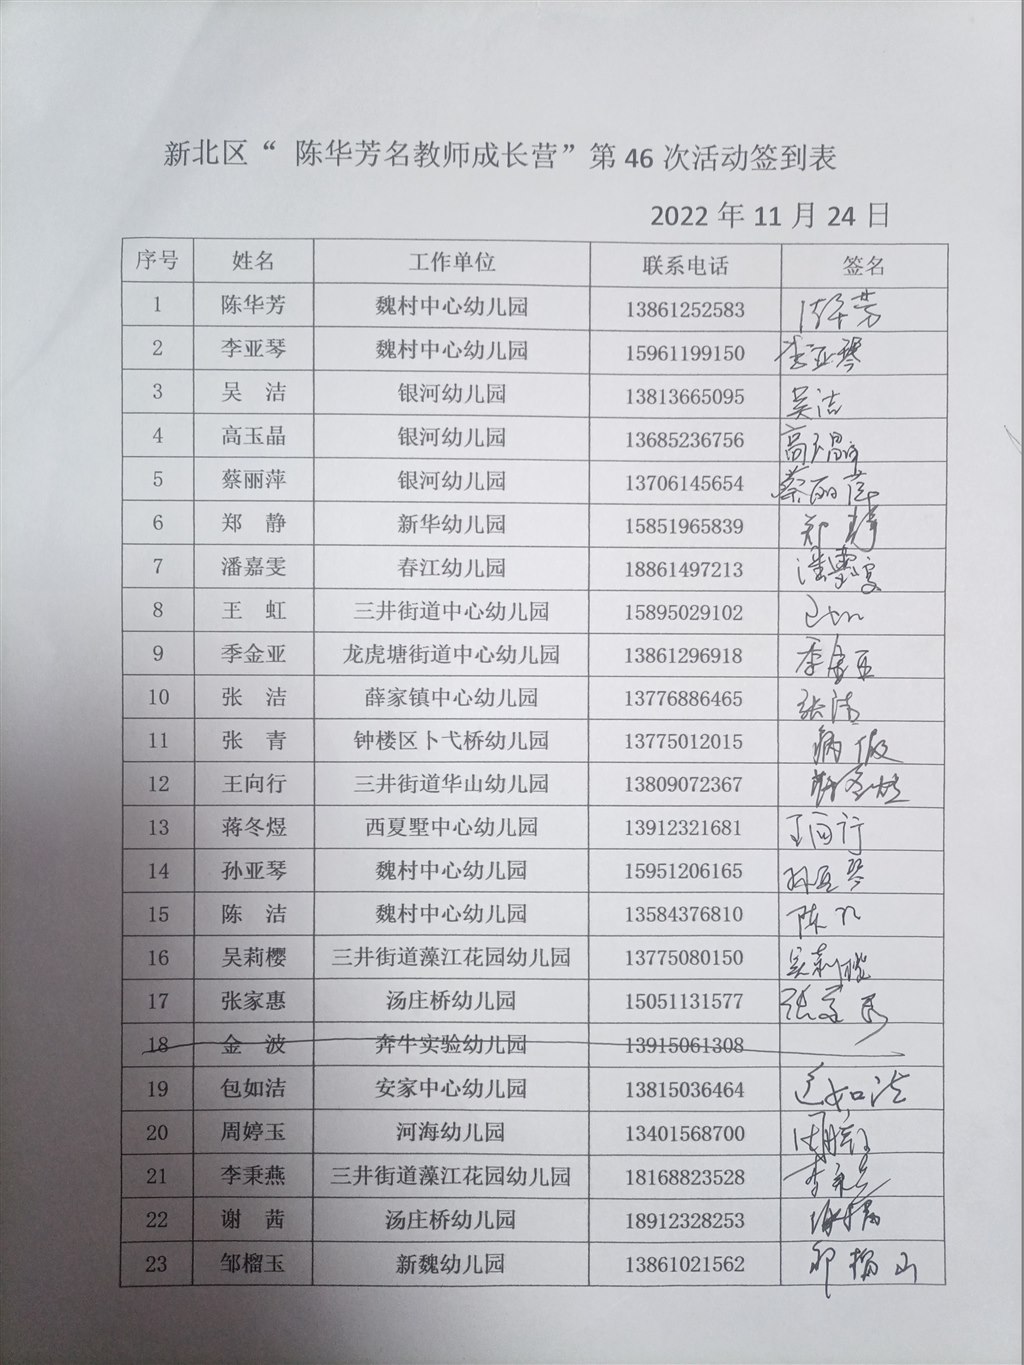 新北区“ 陈华芳名教师成长营”第 46 次活动签到表
2022 年 11 月 24 日
序号 姓名 工作单位 联系电话 签名
1 陈华芳 魏村中心幼儿园 13861252583 陈华芳
2 李亚琴 魏村中心幼儿园 15961199150 李亚琴
3 吴 洁 银河幼儿园 13813665095 吴洁
4 高玉晶 银河幼儿园 13685236756 高玉晶
5 蔡丽萍 银河幼儿园 13706145654 蔡丽萍
6 郑 静 新华幼儿园 15851965839 郑静
7 潘嘉雯 春江幼儿园 18861497213 潘嘉雯
8 王 虹 三井街道中心幼儿园 15895029102
9 季金亚 龙虎塘街道中心幼儿园 13861296918 季金亚
10 张 洁 薛家镇中心幼儿园 13776886465 张洁
11 张 青 钟楼区卜弋桥幼儿园 13775012015 病假
12 王向行 三井街道华山幼儿园 13809072367
13 蒋冬煜 西夏墅中心幼儿园 13912321681 王向行
14 孙亚琴 魏村中心幼儿园 15951206165 孙亚琴
15 陈 洁 魏村中心幼儿园 13584376810 陈
16 吴莉樱 三井街道藻江花园幼儿园 13775080150 吴莉樱
17 张家惠 汤庄桥幼儿园 15051131577 张家惠
18 金 波 奔牛实验幼儿园 13915061308
19 包如洁 安家中心幼儿园 13815036464 包如洁
20 周婷玉 河海幼儿园 13401568700 周婷玉
21 李秉燕 三井街道藻江花园幼儿园 18168823528 李秉燕
22 谢 茜 汤庄桥幼儿园 18912328253
23 邹榴玉 新魏幼儿园 13861021562